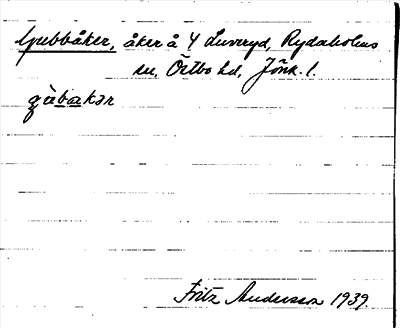 Gubbåker, åker å 4 Luveryd, Rydaholms
sn, Östbo hd, Jönk. l.
gùbakər
Fritz Andersson 1939.